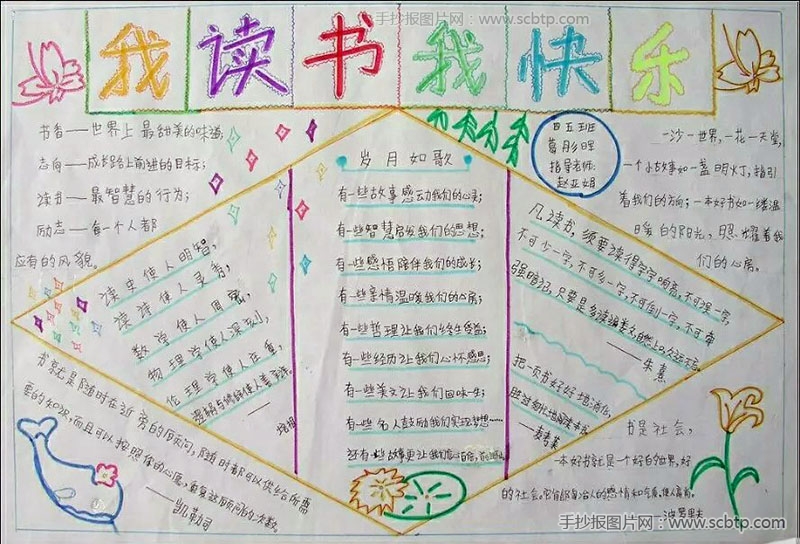 手抄报图片网：www.scbtp.com
我读书我快乐
书香——世界上最甜美的味道;
志向——成长路上前进的目标;
读书——最智慧的行为;
励志——每一个人都
应有的风貌。
读史使人明智,
读诗使人灵秀,
数学使人周密,
物理学使人深刻,
伦理学使人庄重,
逻辑与修辞使人善辩。
——培根
书就是随时在近旁的顾问,随时都可以供给所需
要的知识,而且可以按照你的心愿,重复这顾问的次数。
——凯勒司
岁月如歌
有一些故事感动我们的心灵;
有一些智慧启发我们的思想;
有一些感悟陪伴我们的成长;
有一些亲情温暖我们的心房;
有一些哲理让我们终生受益;
有一些经历让我们心怀感恩;
有一些美文让我们回味一生;
有一些名人鼓励我们实现梦想……
还有一些故事更让我们
四五班
葛彤晖
指导老师:
赵亚娟
一沙一世界,一花一天堂,
一个小故事如一盏明灯,指引
着我们的方向;一本好书如一缕温
暖的阳光,照耀着我
们的心房。
凡读书,须要读得字字响亮,不可误一字,
不可少一字,不可多一字,不可倒一字,不可牵
强暗记,只要是多读遍数,自然上口,久远不忘。
——朱熹
把一页书好好地消化,
胜过匆忙地阅读一本书。
——麦考莱
书是社会,
一本好书就是一个好的世界,好
的社会。它能陶冶人的感情和气质,使人高尚。
——波罗果夫
手抄报图片网：www.scbtp.com